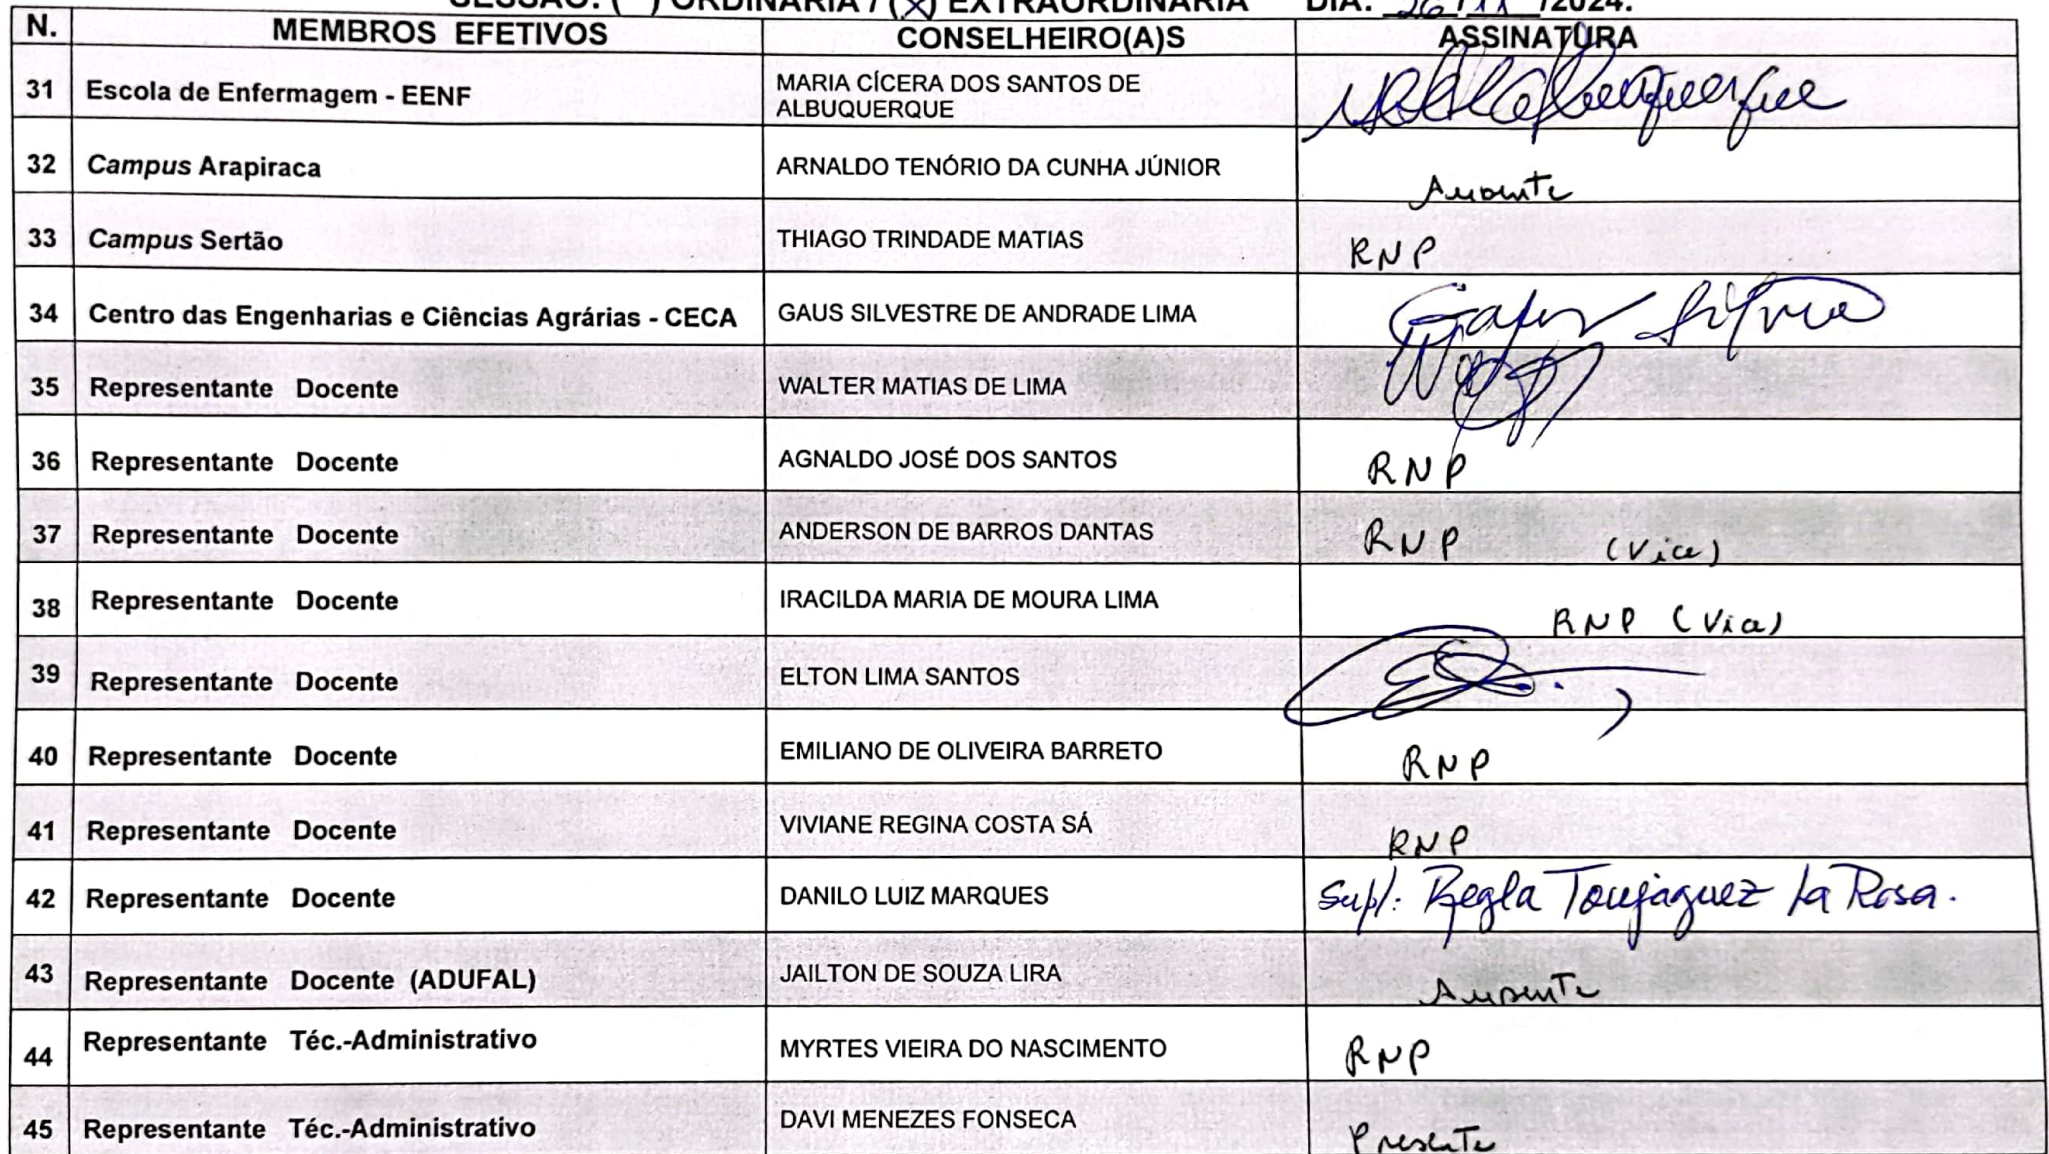 SESSÃO: ( ) ORDINÁRIA / (X) EXTRAORDINÁRIA DIA: 26/11/2024.
N. MEMBROS EFETIVOS CONSELHEIRO(A)S ASSINATURA
31 Escola de Enfermagem - EENF MARIA CÍCERA DOS SANTOS DE
ALBUQUERQUE
32 Campus Arapiraca ARNALDO TENÓRIO DA CUNHA JÚNIOR Ausente
33 Campus Sertão THIAGO TRINDADE MATIAS RNP
34 Centro das Engenharias e Ciências Agrárias - CECA GAUS SILVESTRE DE ANDRADE LIMA
35 Representante Docente WALTER MATIAS DE LIMA
36 Representante Docente AGNALDO JOSÉ DOS SANTOS RNP
37 Representante Docente ANDERSON DE BARROS DANTAS RNP (Vice)
38 Representante Docente IRACILDA MARIA DE MOURA LIMA RNP (Vice)
39 Representante Docente ELTON LIMA SANTOS
40 Representante Docente EMILIANO DE OLIVEIRA BARRETO RNP
41 Representante Docente VIVIANE REGINA COSTA SÁ RNP
42 Representante Docente DANILO LUIZ MARQUES Supl: Regla Toujaguez La Rosa.
43 Representante Docente (ADUFAL) JAILTON DE SOUZA LIRA Ausente
44 Representante Téc.-Administrativo MYRTES VIEIRA DO NASCIMENTO RNP
45 Representante Téc.-Administrativo DAVI MENEZES FONSECA Presente